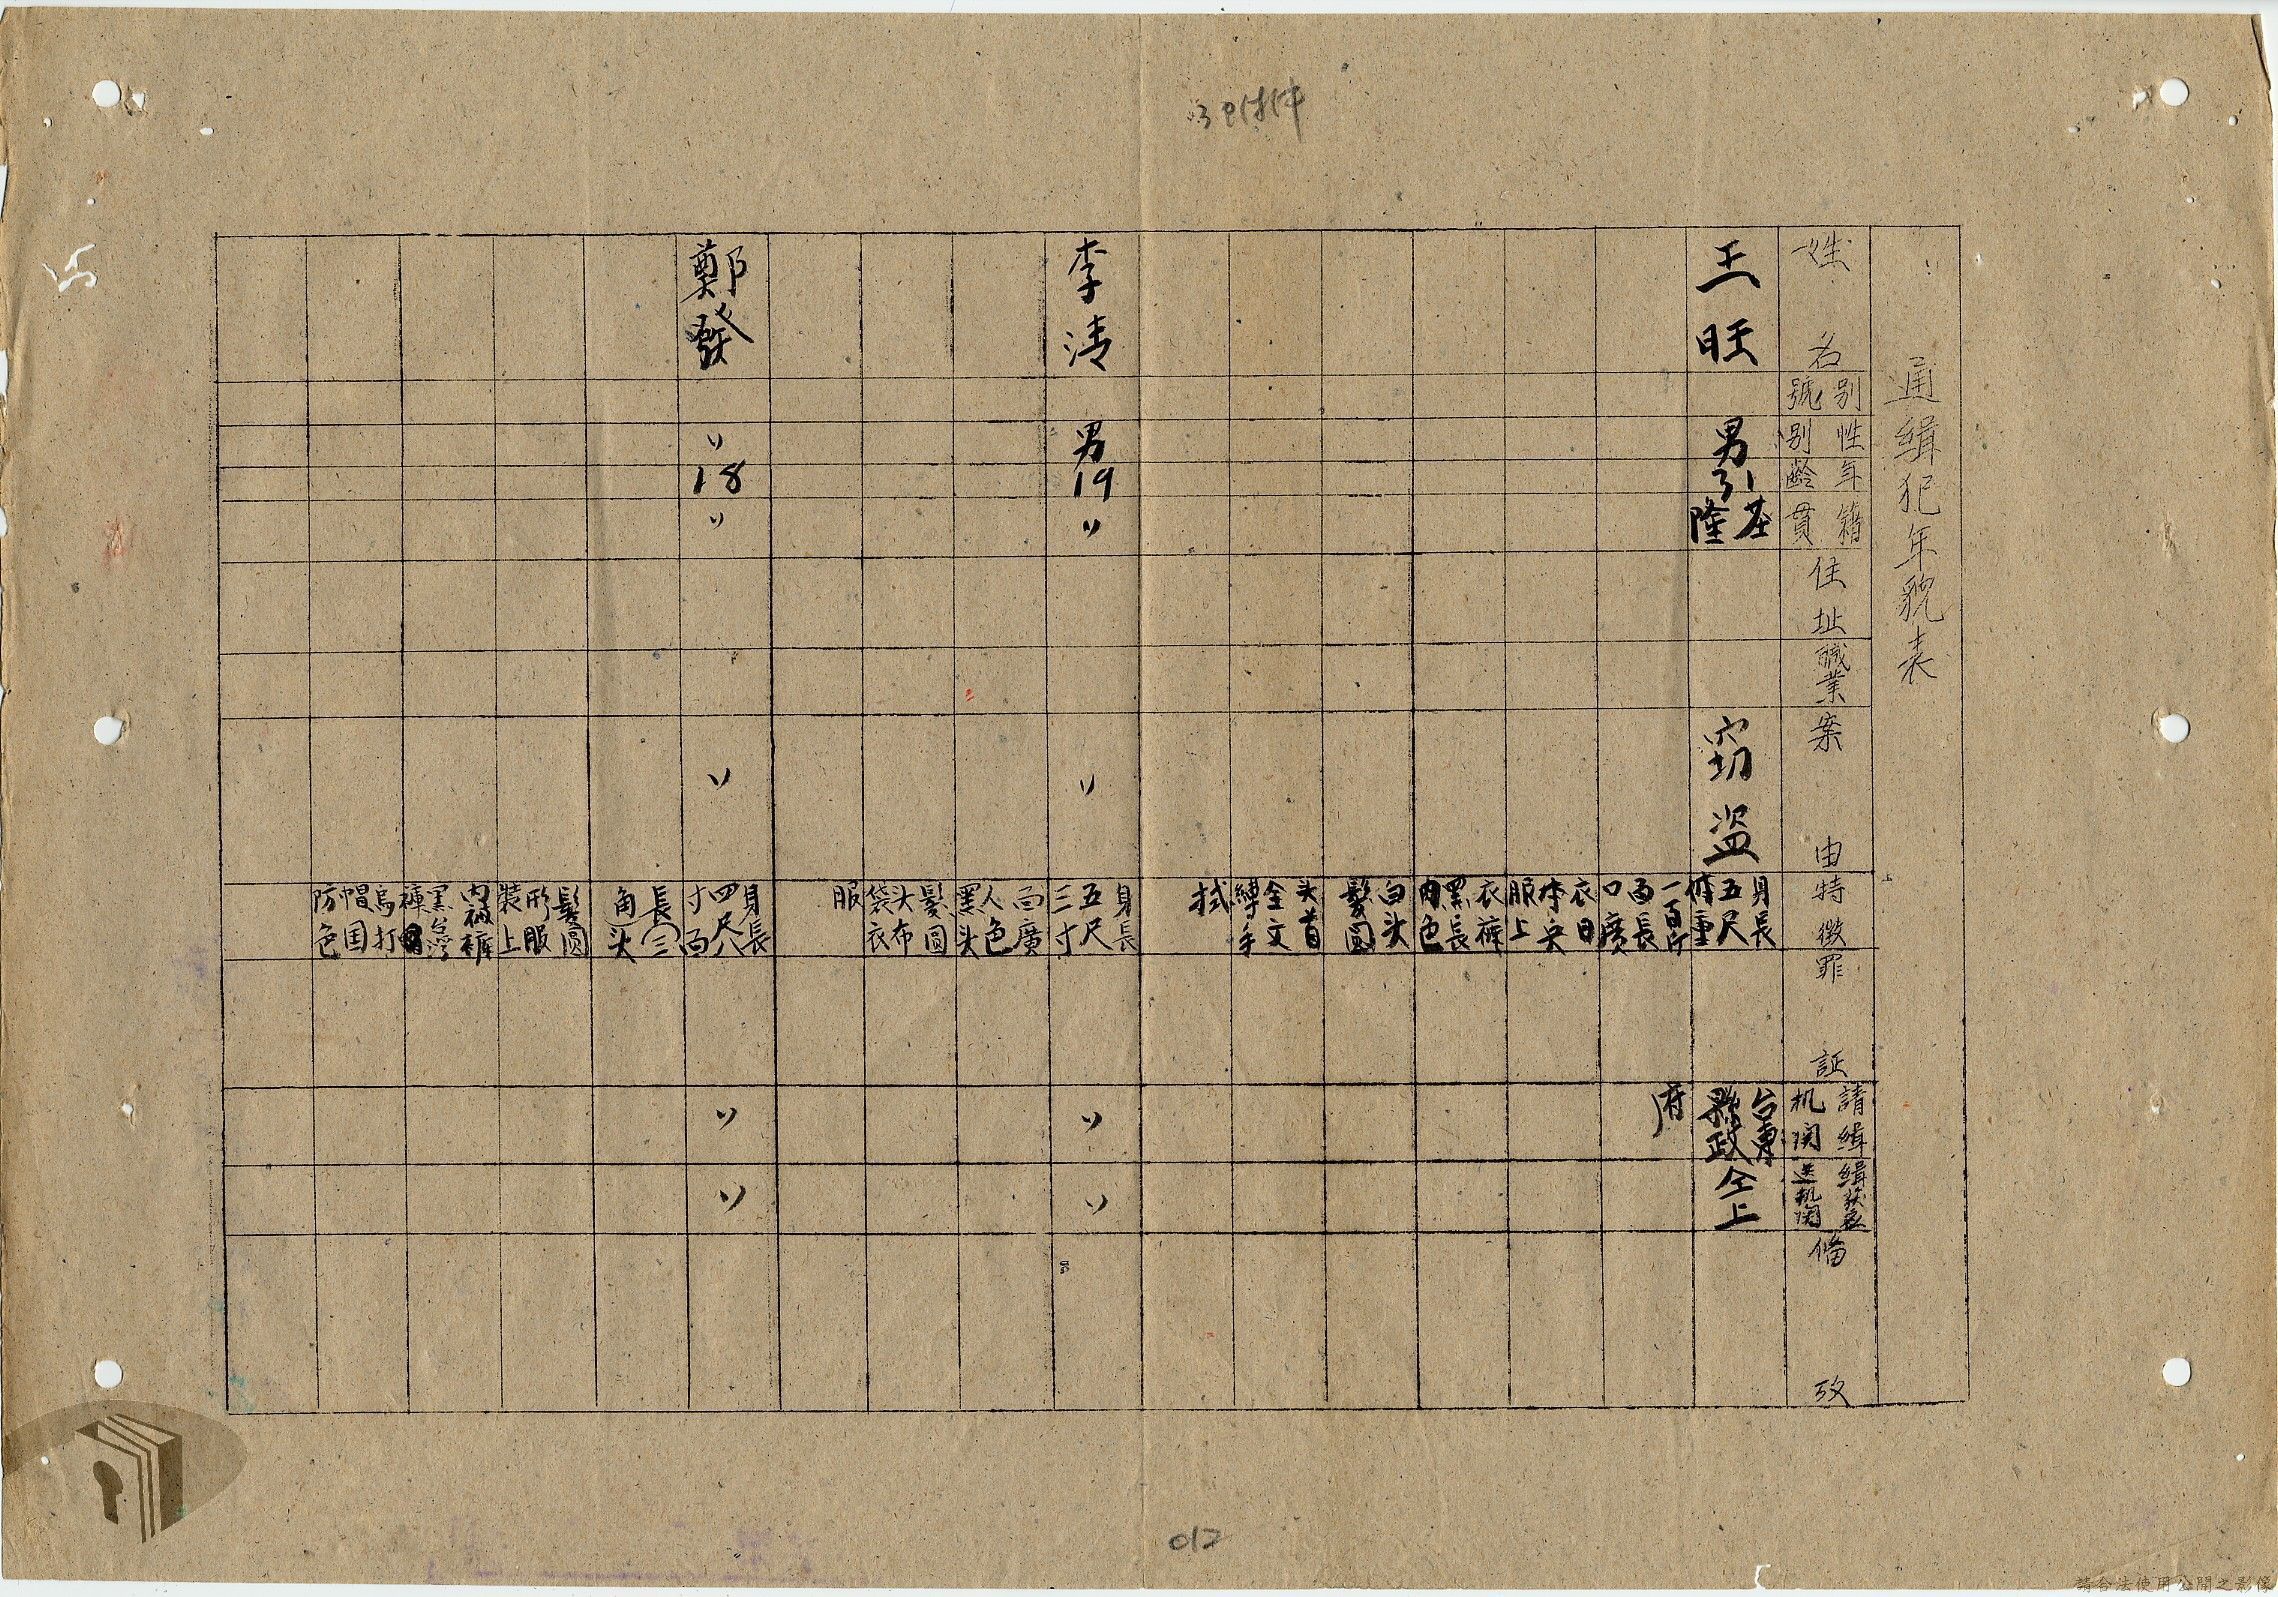 附件
通緝犯年貌表
姓名
別號
性別
年齡
籍貫
住址
職業
案由
特徵
罪証
請緝机関
緝獲送机関
備攷
王旺
男
31
基隆
窃盗
身長五尺
体重一百斤
面長口廣
衣日本兵服上
衣裤黑長肉色
白头髮圓
头首全文縛手拭
台東縣政府
仝上
李清
男
19
〃
〃
身長五尺三寸
面廣人色黑
头髮圓
头布袋衣服
〃
〃
鄭發
〃
18
〃
〃
身長四尺八寸
面長(三角头)
髮圓形
服裝上内裤
黑台灣裤
烏打帽国防色
〃
〃
012
請合法使用公開之影像